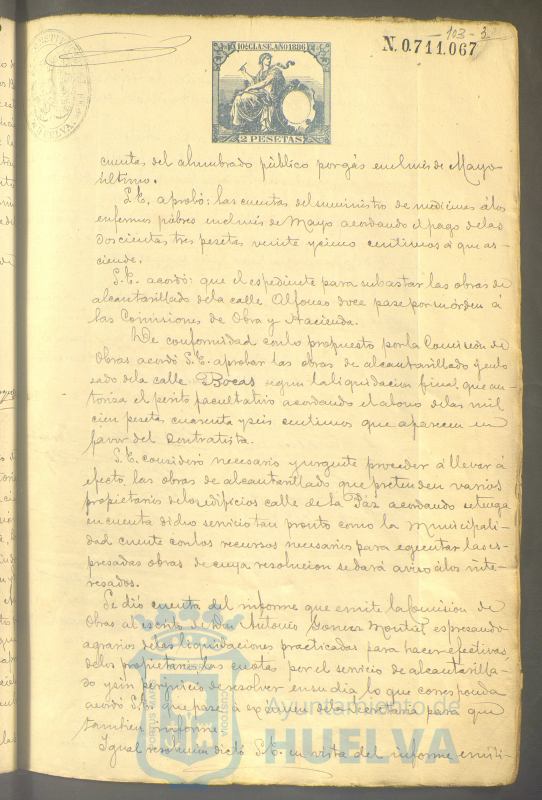 103-3
10ª CLASE. AÑO 1886
N. 0.711.067
2 PESETAS
cuentas del alumbrado público por gás en el més de Mayo
último.
S.E. aprobó: las cuentas del suministro de medicinas á los
enfermos pobres en el més de Mayo acordando el pago de las
doscientas tres pesetas veinte y cinco centimos á que as-
ciende.
S.E. acordó: que el espediente para subastar las obras de
alcantarillado de la calle Alfonso doce pase por su órden á
las Comisiones de Obra y Hacienda.
De conformidad con lo propuesto por la Comision de
Obras acordó S.E. aprobar las obras de alcantarillado y
de la calle Bocas segun la liquidacion final que au-
toriza el perito facultativo acordando el abono de las mil
cien pesetas cuarenta y seis centimos que aparecen en
favor del Contratista.
S.E. consideró necesario y urgente proceder á llevar á
efecto las obras de alcantarillado que pretenden varios
propietarios de los edificios calle de la Paz acordando se tenga
en cuenta dicho servicio tan pronto como la Municipali-
dad cuente con los recursos necesarios para egecutar las es-
presadas obras de cuya resolucion se dará aviso á los inte-
resados.
Se dió cuenta del informe que emite la Comision de
Obras al escrito de Don Antonio Garcia espresando
de las liquidaciones practicadas para hacer efectivas
de los propietarios las cuotas por el servicio de alcantarilla-
do y sin perjuicio de resolver en su dia lo que corresponda
acordó S.E. que pase á examen de la Secretaria para que
tambien informe.
Igual resolucion dictó S.E. en vista del informe emiti-
Ayuntamiento de
HUELVA